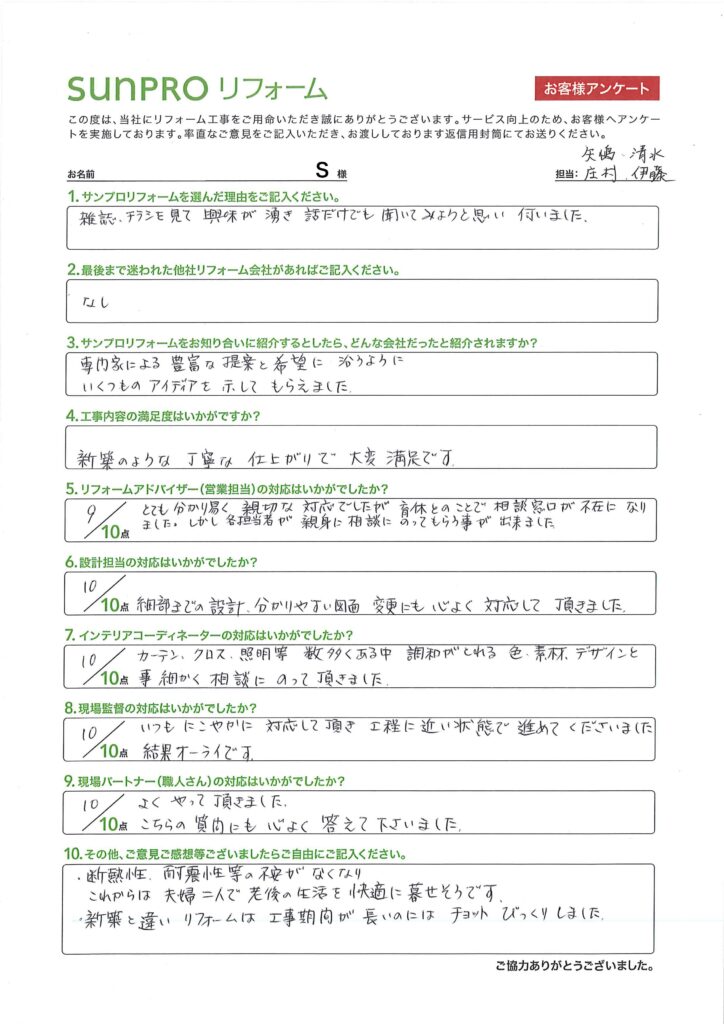 SunPRO リフォーム
お客様アンケート
この度は、当社にリフォーム工事をご用命いただき誠にありがとうございます。サービス向上のため、お客様へアンケー
トを実施しております。率直なご意見をご記入いただき、お渡ししております返信用封筒にてお送りください。
矢嶋、清水
お名前 S 様
担当: 庄村、伊藤
1.サンプロリフォームを選んだ理由をご記入ください。
雑誌、チラシを見て 興味が 湧き 話だけでも 聞いてみようと思い 付いました。
2.最後まで迷われた他社リフォーム会社があればご記入ください。
なし
3.サンプロリフォームをお知り合いに紹介するとしたら、どんな会社だったと紹介されますか?
専門家による 豊富な 提案と希望に 沿うように
いくつもの アイディアを 示して もらえました。
4.工事内容の満足度はいかがですか?
新築のような 丁寧な 仕上がりで 大変 満足です。
5.リフォームアドバイザー(営業担当)の対応はいかがでしたか?
9/10点 とても分かり易く 親切な 対応でしたが 育休とのことで 相談窓口が 不在に なり
ました。しかし 各担当者が 親身に 相談に のってもらう事が 出来ました
6.設計担当の対応はいかがでしたか?
10/10点 細部までの設計、分かりやすい図面 変更にも 心よく 対応して 頂きました。
7.インテリアコーディネーターの対応はいかがでしたか?
10/10点 カーテン、クロス、照明等 数多くある中 調和がとれる 色、素材、デザインと
事細かく 相談に のって 頂きました。
8.現場監督の対応はいかがでしたか?
10/10点 いつも にこやかに 対応して頂き 工程に近い状態で 進めて くださいました
結果オーライです。
9.現場パートナー(職人さん)の対応はいかがでしたか?
10/10点 よく やって 頂きました。
こちらの 質問にも 心よく 答えて 下さいました。
10.その他、ご意見ご感想等ございましたらご自由にご記入ください。
・断熱性、耐震性等の不安がなくなり
これからは 夫婦二人で 老後の生活を 快適に 暮せそうです。
・新築と違い リフォームは 工事期間が 長いのには チョット びっくり しました。
ご協力ありがとうございました。